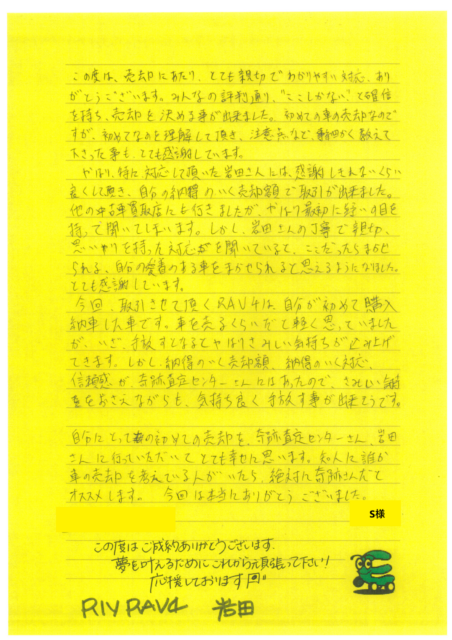 この度は、売却にあたり、とても親切でわかりやすい対応、あり
がとうございます。みんなの評判通り、"ここしかない"と確信
を持ち、売却を決める事が出来ました。初めての車の売却なので
すが、初めてなのを理解して頂き、注意点など、細かく教えて
下さった事も、とても感謝しています。
やはり、特に対応して頂いた岩田さんには、感謝しきれないくらい
良くして頂き、自分の納得のいく売却額で取引が出来ました。
他の中古車買取店にも行きましたが、やはり最初に疑いの目を
持って聞いてしまいます。しかし、岩田さんの丁寧で親切、
思いやりを持った対応を聞いていると、ここだったらまかせ
られる、自分の愛着のある車をまかせられると思えるようになりました。
とても感謝しています。
今回、取引させて頂くRAV4は、自分が初めて購入
納車した車です。車を売るくらいだと軽く思っていました
が、いざ、手放すとなるとやはりさみしい気持ちが込み上げ
てきます。しかし、納得のいく売却額、納得のいく対応、
信頼感が、奇跡査定センターさんにはあったので、さみしい
をおさえながらも、気持ち良く手放す事が出来そうです。
自分にとって初めての売却を、奇跡査定センターさん、岩田
さんに行っていただいてとても幸せに思います。知人に誰か
車の売却を考えている人がいたら、絶対に奇跡さんだて
オススメします。今回は本当にありがとうございました。
S様
この度はご成約ありがとうございます。
夢を叶えるためにこれから頑張って下さい!
応援しております
RIV RAV4 岩田